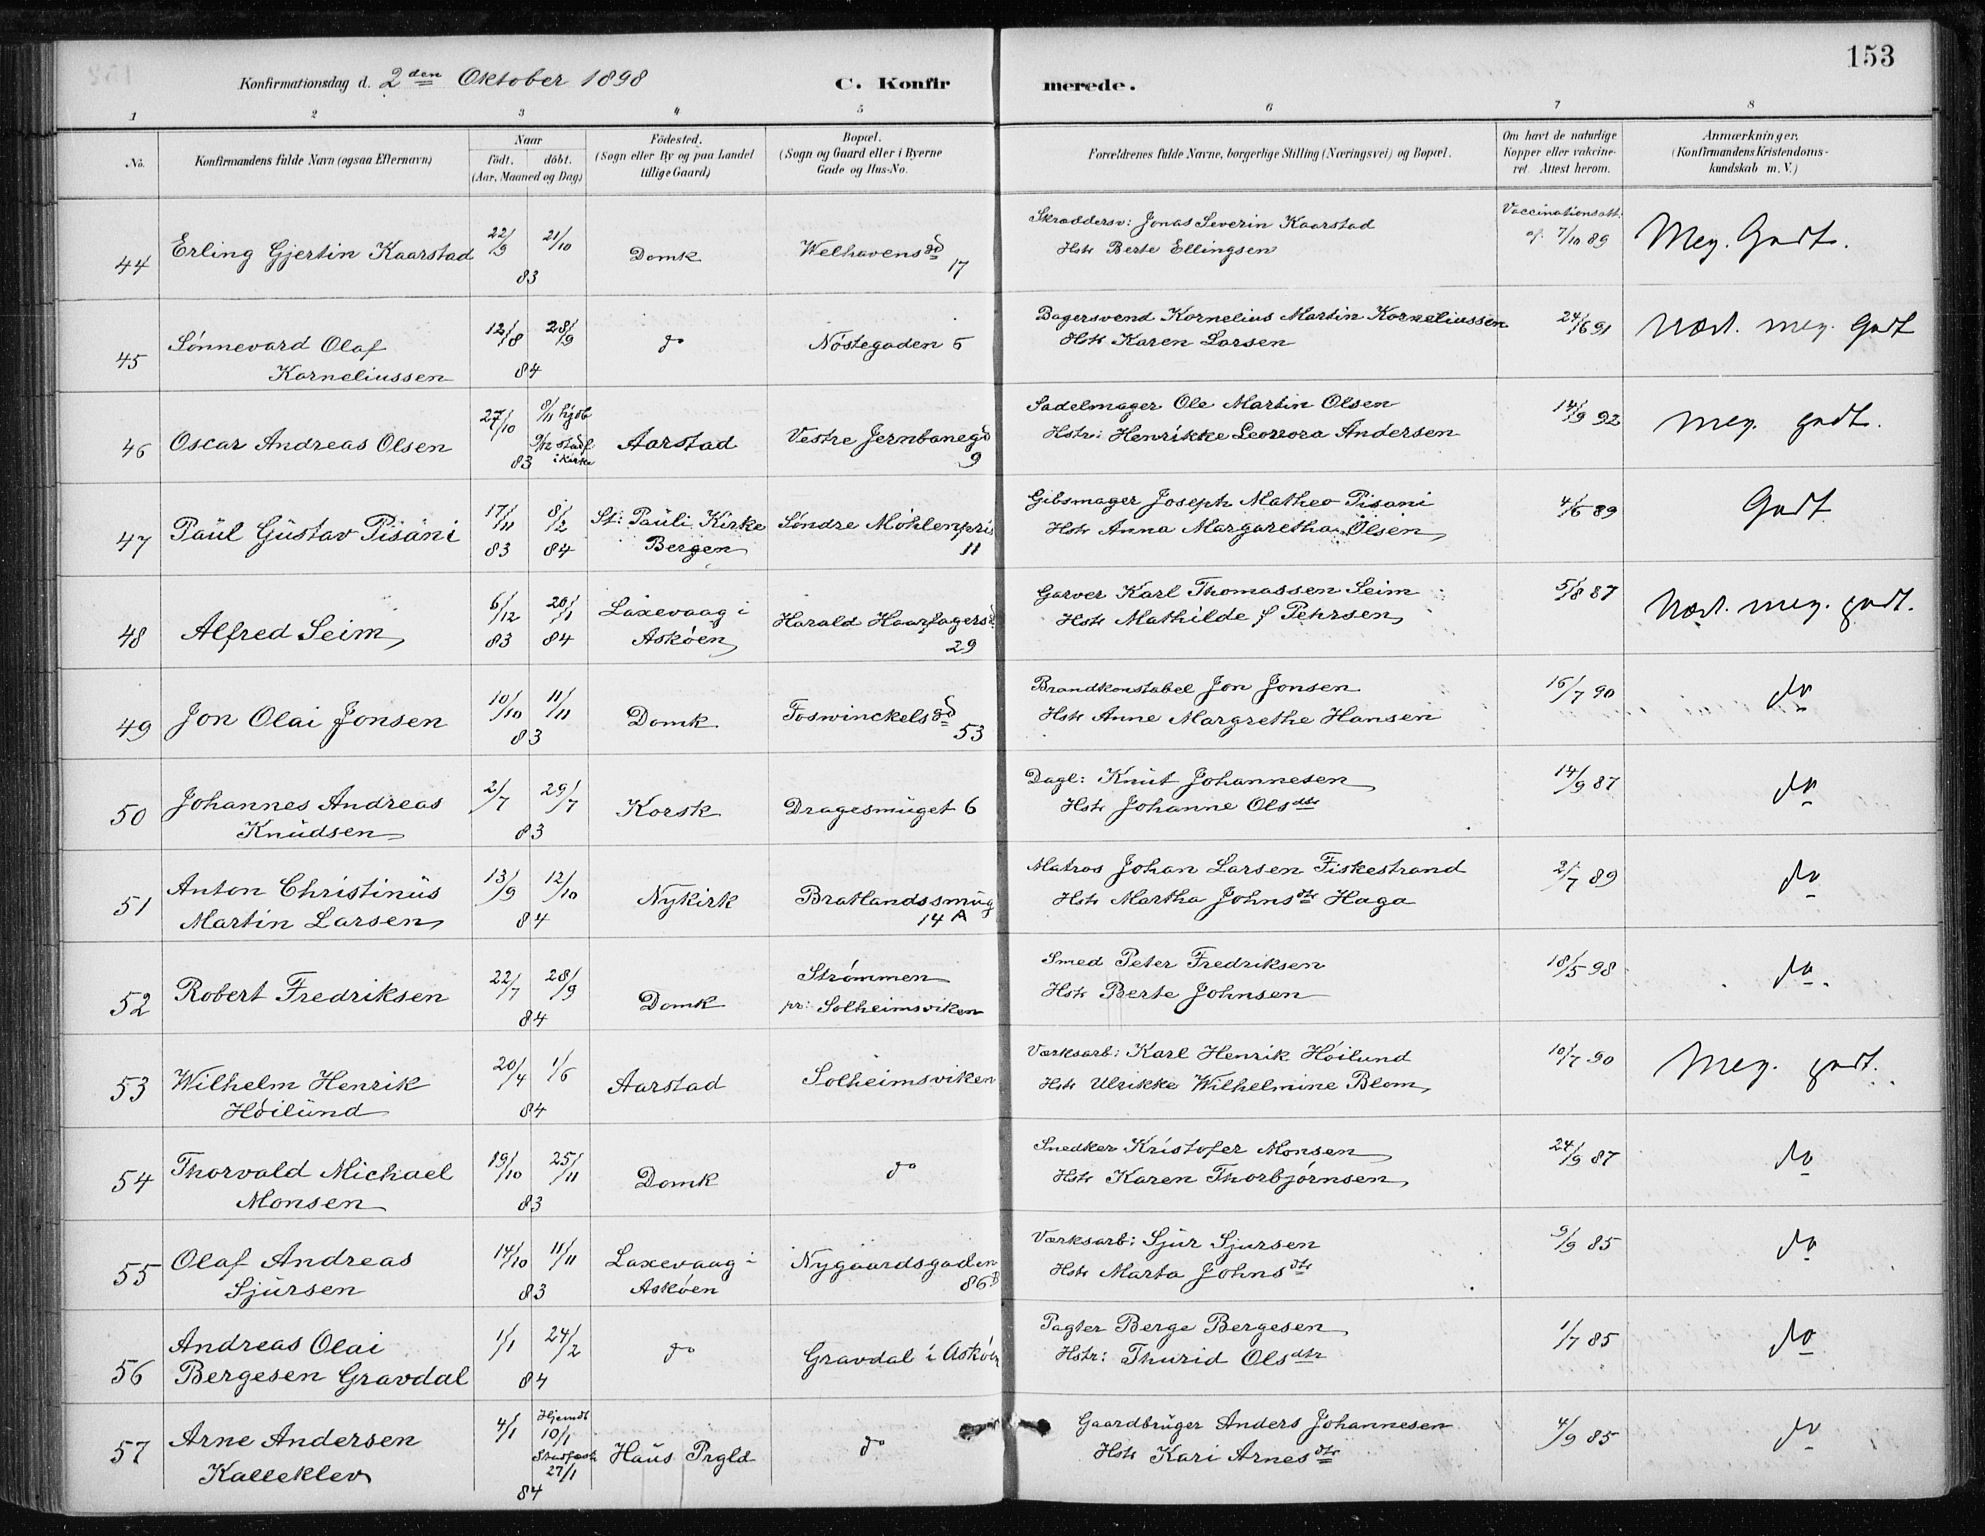 153
Konfirmationsdag d. 2den Oktober 1898
C. Konfirmerede.
1 2 3 4 5 6 7 8
No.
Konfirmandens fulde Navn (ogsaa Efternavn)
Naar
födt. döbt.
(Aar, Maaned og Dag)
Födested.
(Sogn eller By og paa Landet
tillige Gaard)
Bopæl.
(Sogn og Gaard eller i Byerne
Gade og Hus-No.
Forældrenes fulde Navne, borgerlige Stilling (Næringsvei) og Bopæl.
Om havt de naturlige
Kopper eller vakcine-
ret. Attest herom.
Anmærkninger.
(Konfirmandens Kristendoms-
kundskab m. V.)
44 Erling Gjertin Kaarstad 22/9 21/10 83 Domk Welhavensgd 17
Skræddersv: Jonas Severin Kaarstad
Hstr Berte Ellingsen
Vaccinationsatt.
af 7/10 89 Meg. Godt.
45 Sönnevard Olaf
Korneliussen
12/8 28/9 84 do Nöstegaden 5
Bagersvend Kornelius Martin Korneliussen
Hstr Karen Larsen
24/6 91 Næst. meg. Godt
46 Oscar Andreas Olsen 27/10 8/11 hjdb
9/12 stadf
i kirke
83 Aarstad Vestre Jernbanegd 9
Sadelmager Ole Martin Olsen
Hstr: Henrikke Leonora Andersen
14/9 92 Meg. godt.
47 Paul Gustav Pisani 17/11 83 8/2 84 St: Pauli Kirke
Bergen
Söndre Möhlenpris 11
Gibsmager Joseph Matheo Pisani
Hstr Anna Margaretha Olsen
4/6 89 Godt
48 Alfred Seim 6/12 83 20/1 84 Laxevaag i
Asköen
Harald Haarfagersgd 29
Garver Karl Thomassen Seim
Hstr Mathilde f Pehrsen
5/8 87 Næst. meg. godt.
49 Jon Olai Jonsen 10/10 11/11 83 Domk Foswinckelsgd 53
Brandkonstabel Jon Jonsen
Hstr Anne Margrethe Hansen
16/7 90 do
50 Johannes Andreas
Knudsen
2/7 29/7 83 Korsk Dragesmuget 6
Dagl: Knut Johannesen
Hstr Johanne Olsdtr
14/9 87 do
51 Anton Christinus
Martin Larsen
13/9 12/10 84 Nykirk Bratlandssmug
14 A
Matros Johan Larsen Fiskestrand
Hstr Martha Johnsdtr Haga
2/7 89 do
52 Robert Fredriksen 22/7 28/9 84 Domk Strömmen
pr: Solheimsviken
Smed Peter Fredriksen
Hstr Berte Johnsen
18/5 98 do.
53 Wilhelm Henrik
Höilund
20/4 1/6 84 Aarstad Solheimsviken
Værksarb: Karl Henrik Höilund
Hstr Ulrikke Wilhelmine Blom
10/7 90 Meg. godt.
54 Thorvald Michael
Monsen
19/10 25/11 83 Domk do
Snedker Kristofer Monsen
Hstr Karen Thorbjörnsen
24/9 87 do
55 Olaf Andreas
Sjursen
14/10 11/11 83 Laxevaag i
Asköen
Nygaardsgaden
86 B
Værksarb: Sjur Sjursen
Hstr Marta Johnsdtr
9/9 85 do
56 Andreas Olai
Bergesen Gravdal
1/1 24/2 84 do Gravdal i Asköen
Pagter Berge Bergesen
Hstr: Thurid Olsdtr
1/7 85 do
57 Arne Andersen
Kalleklev
4/1 Hjemdb
10/1
Stadfæst
27/1
84 Haus Prgld do
Gaardbruger Anders Johannesen
Hstr Kari Arnesdtr
4/9 85 do